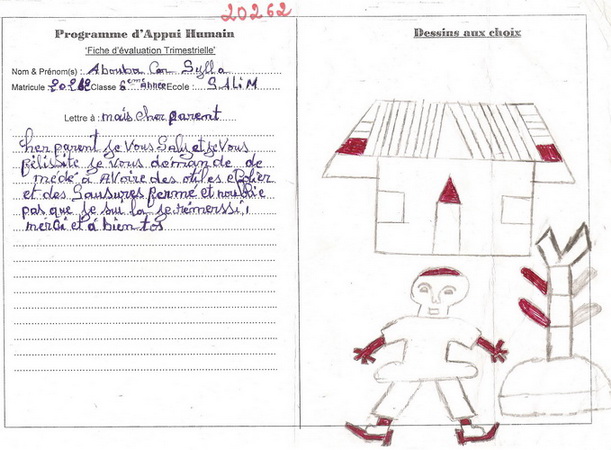 20262
Programme d'Appui Humain
'Fiche d'évaluation Trimestrielle'
Nom & Prénom(s) : Abouba Car Sylla
Matricule 20262 Classe 6ème Année Ecole : SALiM
Lettre à : mais cher parent
cher parent je vous Saly et je vous
félisite je vous demande de
m'édé à Avoire des otiles ékolier
et des Sausures fermé et noublie
pas que je sui la je remerssi,
mérci et à bien tos
Dessins aux choix